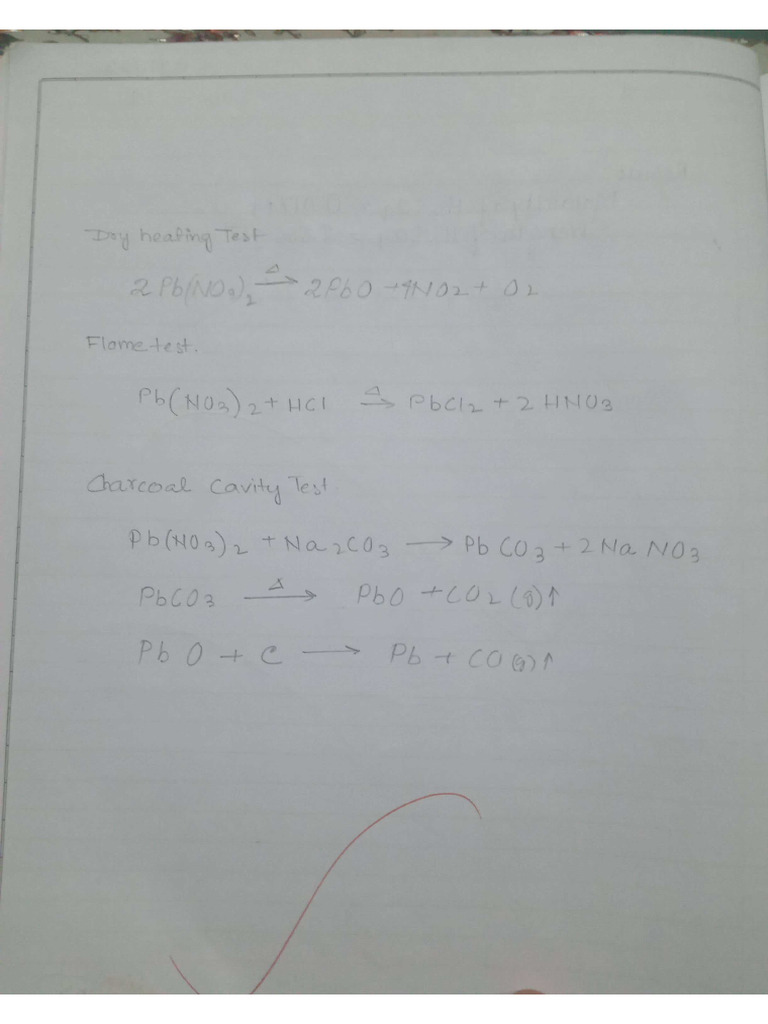 Dry heating Test
2Pb(NO3)2 Δ→ 2PbO + 4NO2 + O2
Flame test.
Pb(NO3)2 + HCl Δ→ PbCl2 + 2HNO3
Charcoal Cavity Test
Pb(NO3)2 + Na2CO3 → PbCO3 + 2NaNO3
PbCO3 Δ→ PbO + CO2(g)↑
PbO + C → Pb + CO(g)↑